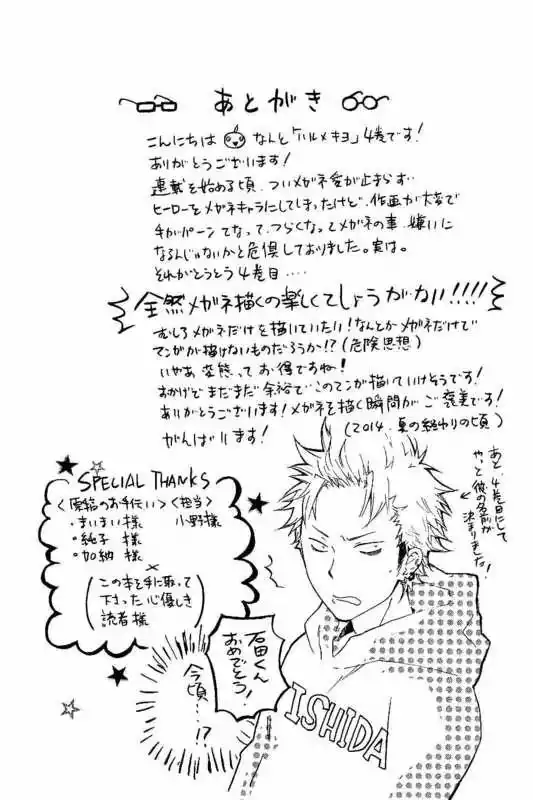 あとがき
こんにちは なんと「ハルメキヨ」4巻です!
ありがとうございます!
連載を始める頃、ついメガネ愛が止まらず…
ヒーローをメガネキャラにしてしまったけど、作画が大変で
手がパーンてなって、つらくなってメガネの事、嫌いに
なるんじゃないかと危惧しておりました。実は。
それがとうとう4巻目‥‥
全然メガネ描くの楽しくてしょうがない!!!!
むしろメガネだけを描いていたい!なんとかメガネだけで
マンガが描けないものだろうか!?(危険思想)
いやあ変態ってお得ですね!
おかげでまだまだ余裕でこのマンガ描いていけそうです!
ありがとうございます!メガネを描く瞬間がご褒美です!
がんばります!
(2014.夏の終わりの頃)
あと、4巻目にして
やっと彼の名前が
決まりました!
SPECIAL THANKS
<原稿のお手伝い>
・まいまい様
・純子様
・加納様
<担当>
小野様
×
(この本を手に取って
下さった心優しき
読者様)
石田くん
おめでとう!
今頃…!?
ISHIDA